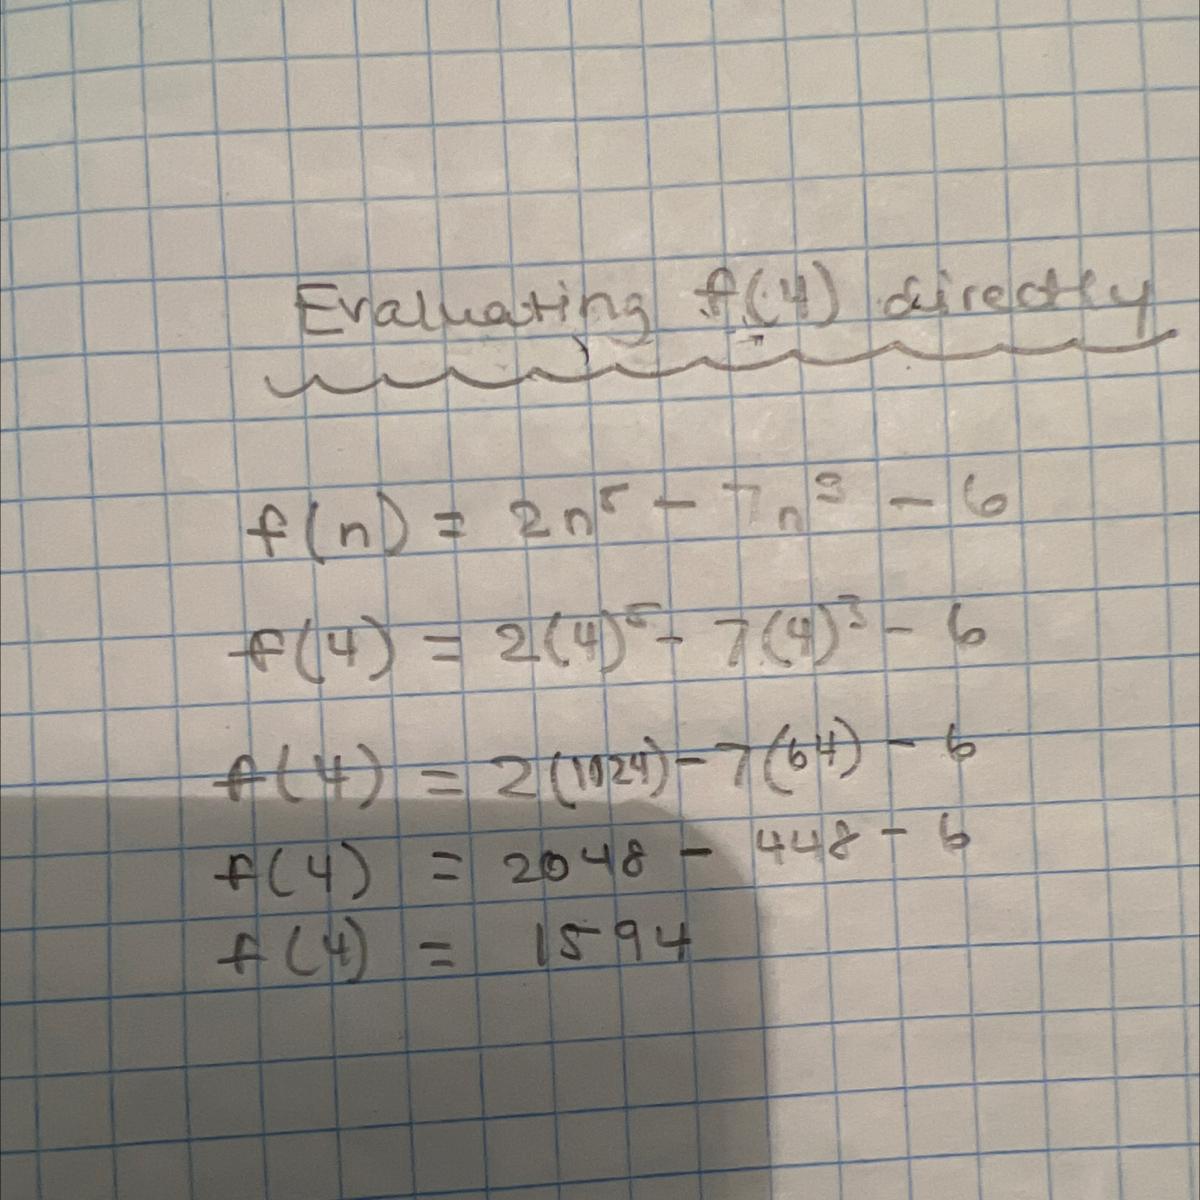 Evaluating f(4) directly
f(n) = 2n⁵ - 7n³ - 6
f(4) = 2(4)⁵ - 7(4)³ - 6
f(4) = 2(1024) - 7(64) - 6
f(4) = 2048 - 448 - 6
f(4) = 1594